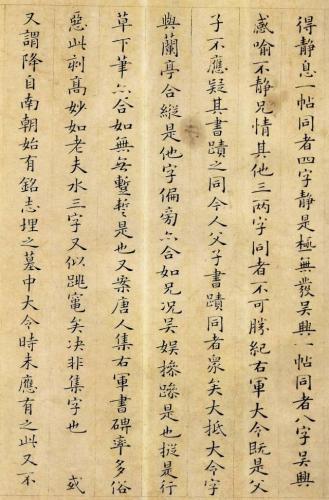 得静息一帖同者四字静是極無發吴興一帖同者八字吴興
感喻不静兄情其他三两字同者不可勝紀右軍大令既是父
子不應疑其書蹟之同今人父子書蹟同者衆矣大抵大令字
與蘭亭合縱是他字偏旁六合如兄况吴娱摻蹤是也挻是行
草下筆六合如無每蹔暫是也又案唐人集右軍書碑率多俗
惡此刻髙妙如老夫水三字又似跳竈矣决非集字也　或
又謂降自南朝始有銘志埋之墓中大令時未應有之此又不